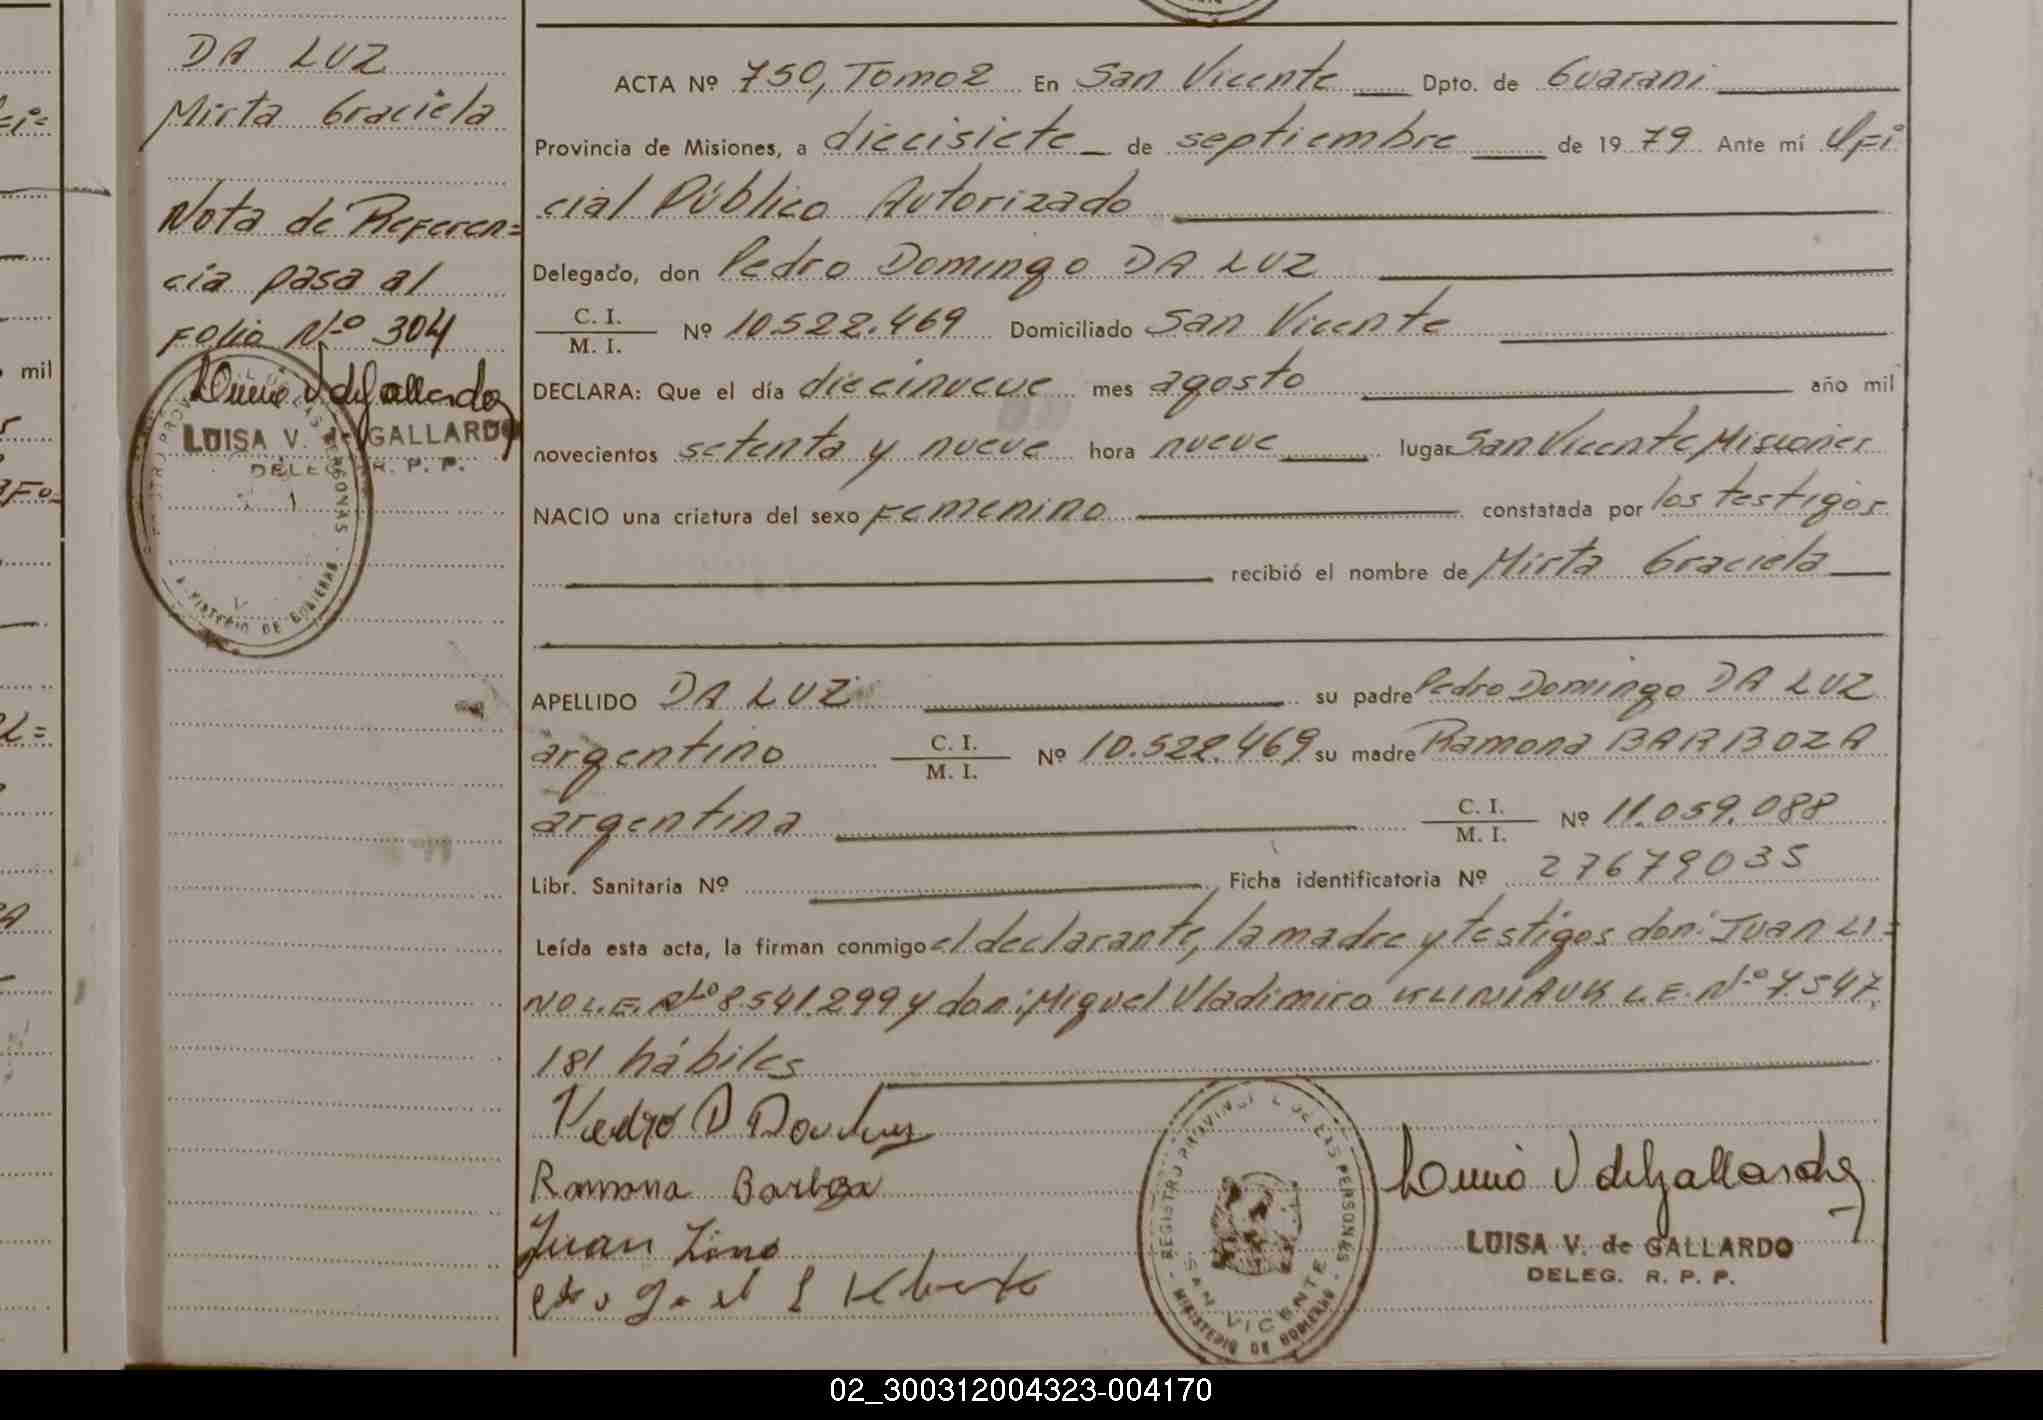 DA LUZ
Mirta Graciela
Nota de Referen=
cia pasa al
Folio Nº 304
LUISA V. de GALLARDO
DELEG. R. P. P.
MINISTERIO DE GOBIERNO
ACTA Nº 750, Tomo 2 En San Vicente Dpto. de Guarani
Provincia de Misiones, a diecisiete de septiembre de 1979 Ante mí Ofi
cial Público Autorizado
Delegado, don Pedro Domingo DA LUZ
C. I.
M. I. Nº 10.522.469 Domiciliado San Vicente
DECLARA: Que el día diecinueve mes agosto año mil
novecientos setenta y nueve hora nueve lugar San Vicente, Misiones
NACIO una criatura del sexo Femenino constatada por los testigos
recibió el nombre de Mirta Graciela
APELLIDO DA LUZ su padre Pedro Domingo DA LUZ
argentino C. I.
M. I. Nº 10.522.469 su madre Ramona BARBOZA
argentina C. I.
M. I. Nº 11.059.088
Libr. Sanitaria Nº Ficha identificatoria Nº 27679035
Leída esta acta, la firman conmigo el declarante, la madre y testigos don: Juan LI=
NO L.E. Nº 8541.299 y don: Miguel Vladimiro KLINIAUK L.E. Nº 7.547.
181 hábiles
Pedro D Da Luz
Ramona Barboza
Juan Lino
REGISTRO PROVINCIAL DE LAS PERSONAS
SAN VICENTE
MINISTERIO DE GOBIERNO
LUISA V. de GALLARDO
DELEG. R. P. P.
mil
02_300312004323-004170